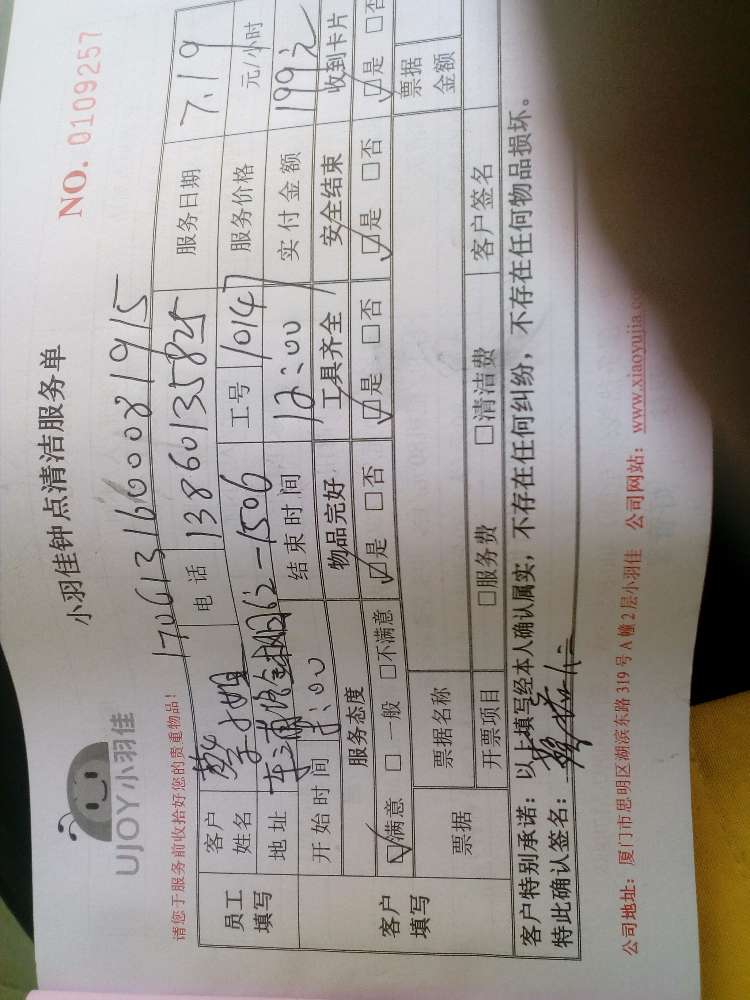 UJOY小羽佳
小羽佳钟点清洁服务单
NO. 0109257
请您于服务前收拾好您的贵重物品！
1706131600081915
员工填写
客户姓名 蔡小姐 电话 13860135825 服务日期 7.19
地址 2-1506 工号 10147 服务价格 元/小时
开始时间 :00 结束时间 12:00 实付金额 199元
客户填写
服务态度 物品完好 工具齐全 安全结束 收到卡片
☑满意 □一般 □不满意 ☑是 □否 ☑是 □否 ☑是 □否 ☑是 □否
票据 票据名称 票据金额
开票项目 □服务费 □清洁费 客户签名
客户特别承诺：以上填写经本人确认属实，不存在任何纠纷，不存在任何物品损坏。
特此确认签名：
公司地址：厦门市思明区湖滨东路319号A幢2层小羽佳 公司网站：www.xiaoyujia.co